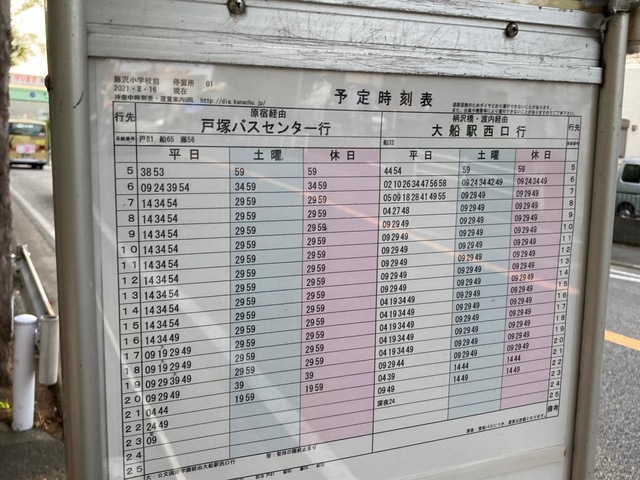 藤沢小学校前 停留所 01
2021・8・16 現在
神奈中時刻表・運賃案内URL http://dia.kanachu.jp/
予定時刻表
行先 原宿経由 柄沢橋・渡内経由 行先
戸塚バスセンター行 大船駅西口行
戸81 船65 藤56 船32
平日 土曜 休日 平日 土曜 休日
5 38 53 59 59 44 54 59 59 5
6 09 24 39 54 34 59 34 59 02 10 26 34 47 56 58 09 24 34 42 49 09 24 34 49 6
7 14 34 54 29 59 29 59 05 09 18 28 41 49 55 09 29 49 09 29 49 7
8 14 34 54 29 59 29 59 04 27 48 09 29 49 09 29 49 8
9 14 34 54 29 59 29 59 09 29 49 09 29 49 09 29 49 9
10 14 34 54 29 59 29 59 09 29 49 09 29 49 09 29 49 10
11 14 34 54 29 59 29 59 09 29 49 09 29 49 09 29 49 11
12 14 34 54 29 59 29 59 09 29 49 09 29 49 09 29 49 12
13 14 34 54 29 59 29 59 09 29 49 09 29 49 09 29 49 13
14 14 34 54 29 59 29 59 09 29 49 09 29 49 09 29 49 14
15 14 34 54 29 59 29 59 04 19 34 49 09 29 49 09 29 49 15
16 14 34 49 29 59 29 59 04 19 34 49 09 29 49 09 29 49 16
17 09 19 29 49 29 59 29 59 04 19 34 49 09 29 49 09 29 49 17
18 09 19 29 49 29 59 29 59 04 19 34 49 09 29 49 09 29 49 18
19 09 29 39 49 29 59 29 59 04 19 34 49 09 29 49 09 29 49 19
20 09 29 49 39 39 09 29 44 09 29 49 09 29 49 20
21 04 44 19 59 19 59 04 39 14 44 14 44 21
22 24 49 09 49 14 49 14 49 22
23 09 深夜24 23
24 24
25 25
備考